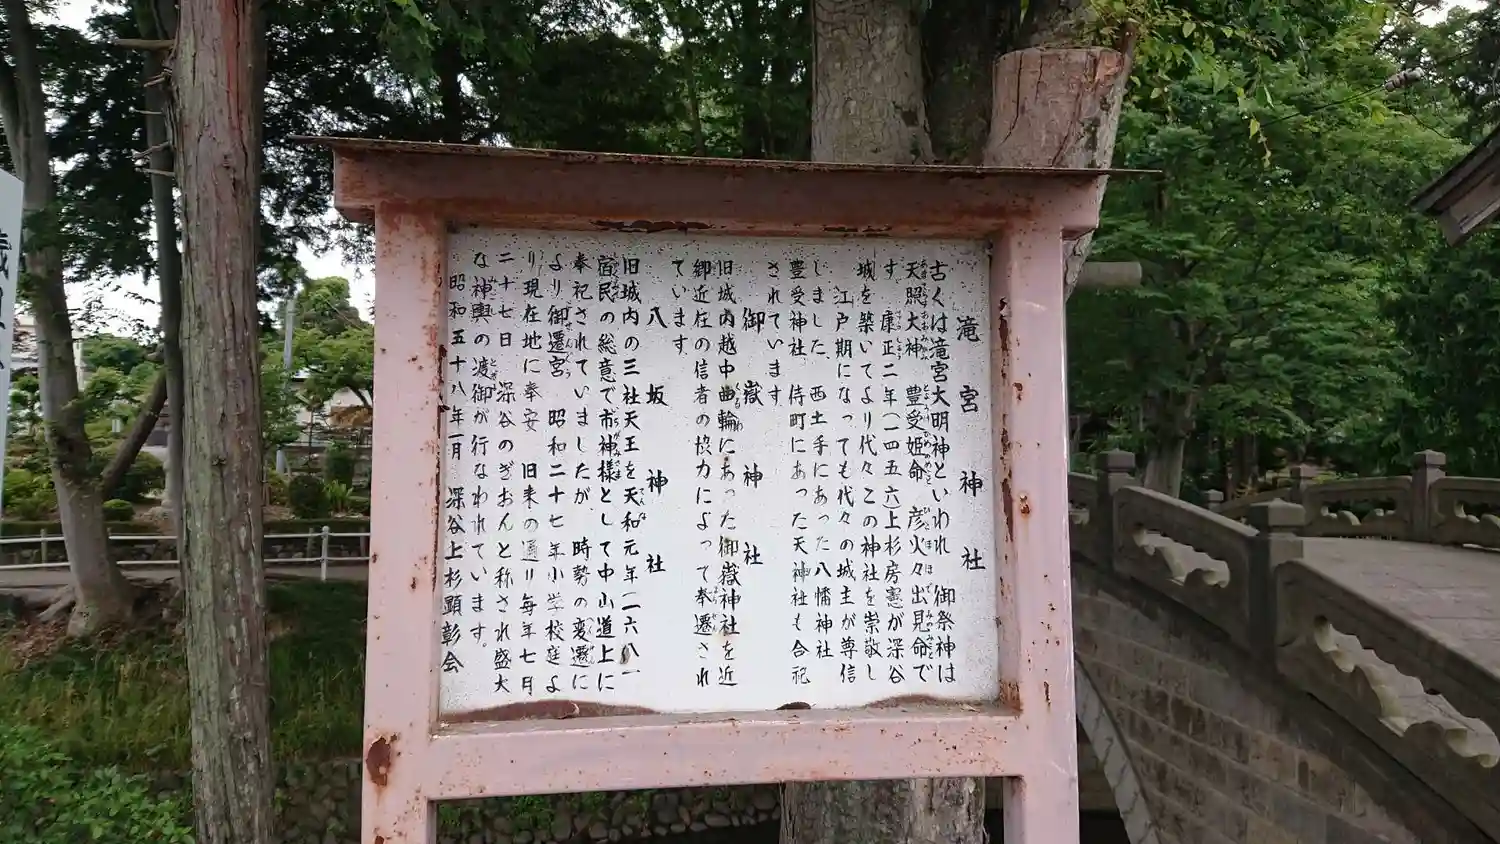 滝宮神社
古くは滝宮大明神といわれ 御祭神は
天照大神 豊受姫命 彦火々出見命で
す 康正二年(一四五六)上杉房憲が深谷
城を築いてより代々この神社を崇敬し
江戸期になっても代々の城主が尊信
しました 西土手にあった八幡神社
豊受神社、侍町にあった天神社も合祀
されています
御嶽神社
旧城内越中曲輪にあった御嶽神社を近
郷近在の信者の協力によって奉遷され
ています
八坂神社
旧城内の三社天王を天和元年(一六八一)
宿民の総意で市神様として中山道上に
奉祀されていましたが、時勢の変遷に
より御遷宮 昭和二十七年小学校庭よ
り現在地に奉安 旧来の通り毎年七月
二十七日 深谷のぎおんと称され盛大
な神輿の渡御が行なわれています。
昭和五十八年一月 深谷上杉顕彰会